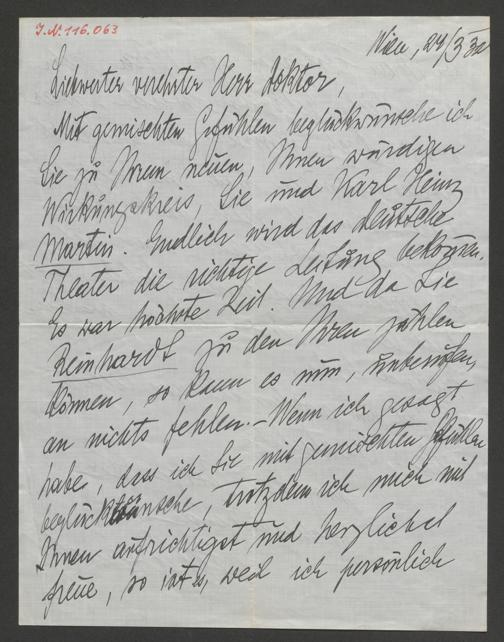 J.N. 116.063
Wien, 24/3 32
Liebwerter verehrter Herr Doktor,
Mit gemischten Gefühlen beglückwünsche ich
Sie zu Ihrem neuen, Ihnen würdigen
Wirkungskreis, Sie und Karl Heinz
Martin. Endlich wird das deutsche
Theater die richtige Leitung bekommen.
Es war höchste Zeit. Und da Sie
Reinhardt zu den Ihren zählen
können, so kann es nun, unberufen,
an nichts fehlen. – Wenn ich gesagt
habe, dass ich Sie mit gemischten Gefühlen
beglückwünsche, trotzdem ich mich mit
Ihnen aufrichtigst und herzlichst
freue, so ist es, weil ich persönlich